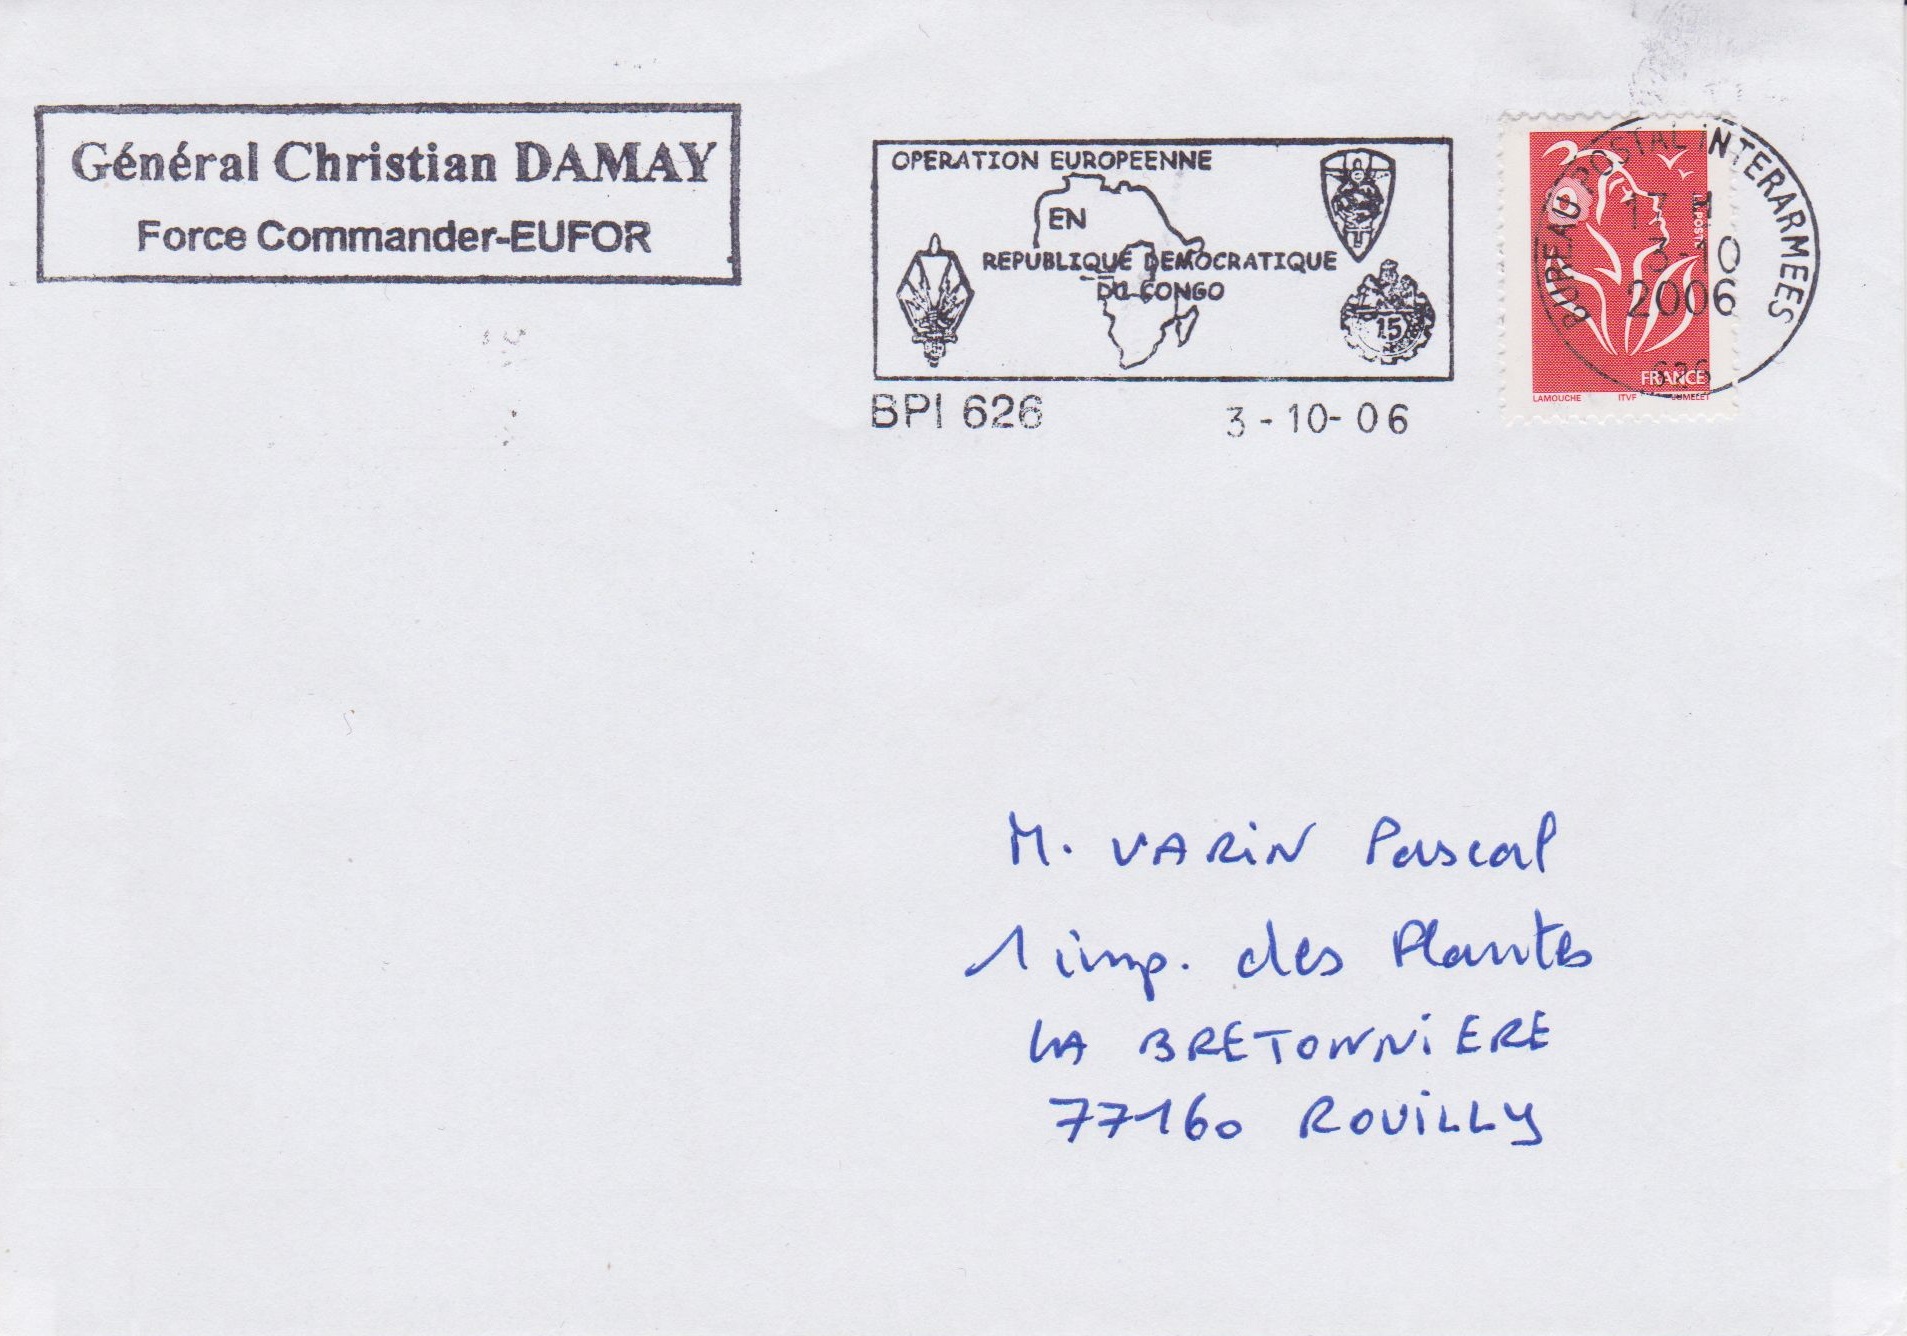 Général Christian DAMAY
Force Commander-EUFOR
OPERATION EUROPEENNE
EN
REPUBLIQUE DEMOCRATIQUE
DU CONGO
15
BPI 626
3-10-06
BUREAU POSTAL INTERARMEES
17 H
3 10
2006
626
LA POSTE
FRANCE
LAMOUCHE ITVF JUMELET
M. VARiN Pascal
1 imp. des Plantes
LA BRETONNiERE
77160 ROUiLLY